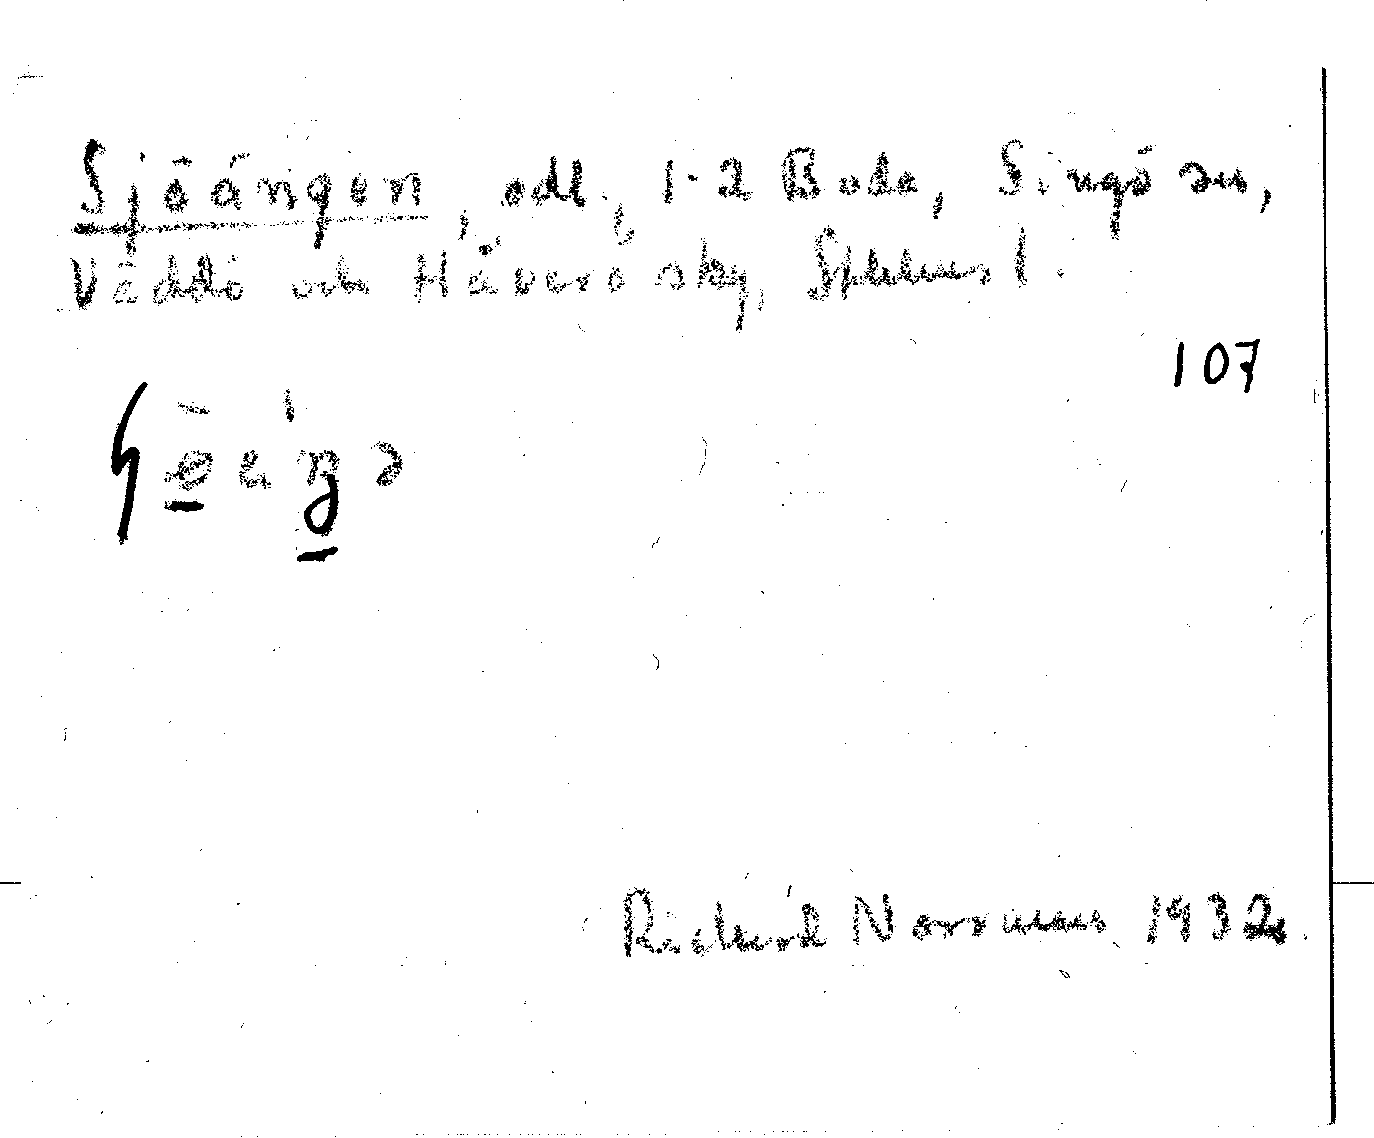 Sjöängen, odl., 1-2 Boda, Singö sn,
Väddö och Häverö skg, Sthlms l.
107
Richard Norrman 1932.